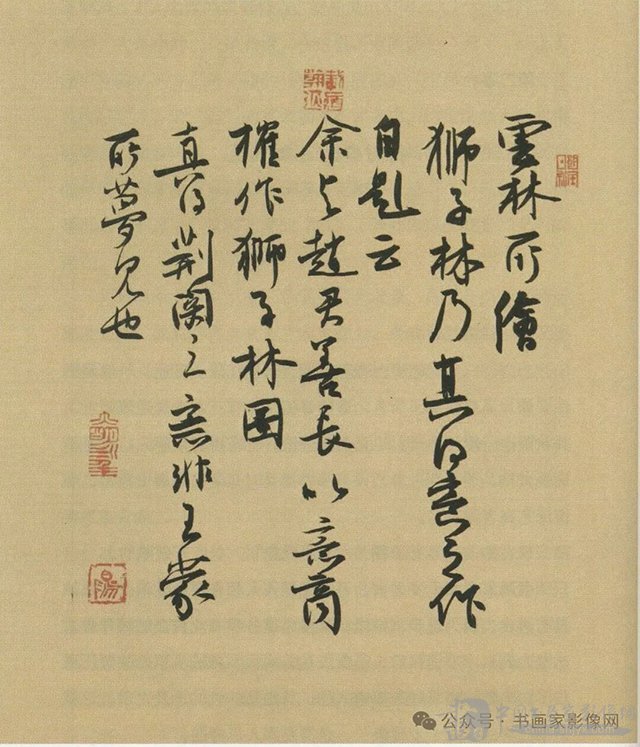 雲林所繪
獅子林乃其得意之作
自題云
余与趙君善長以意商
榷作獅子林图
真得荆関之意非王蒙
所夢見也
公众号·书画家影像网